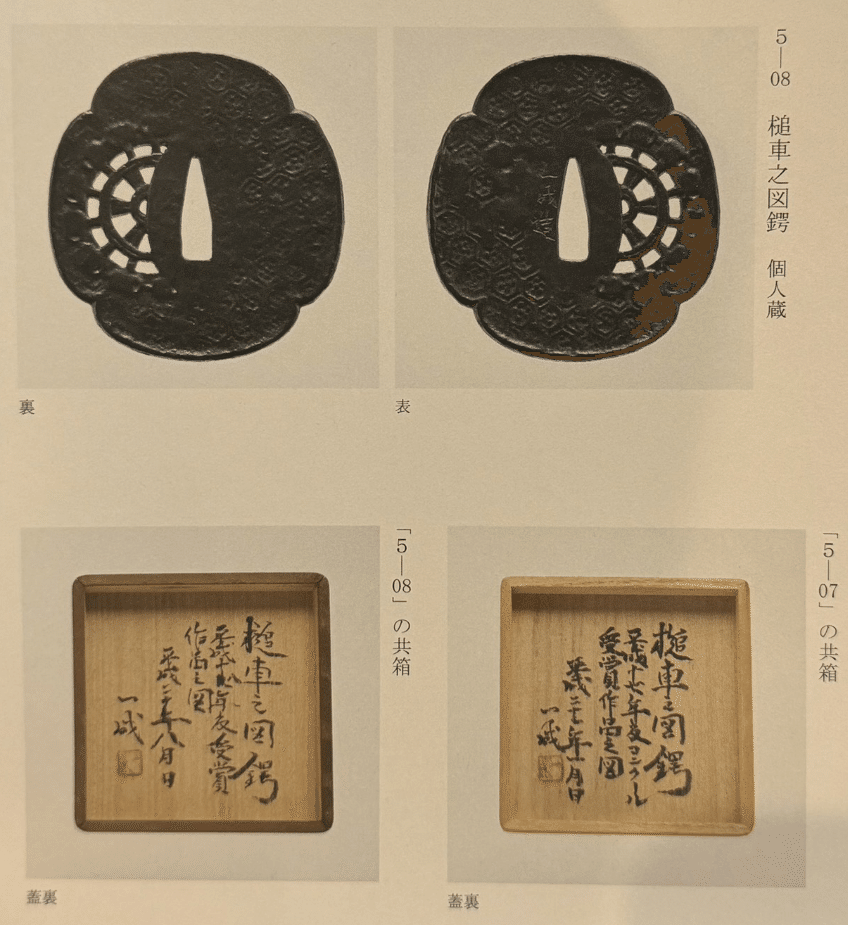 5—08 槌車之図鍔 個人蔵
表
裏
「5—07」の共箱
槌車之図鍔
平成十七年度コンクール
受賞作品之図
平成二十七年十一月日
一誠
蓋裏
「5—08」の共箱
槌車之図鍔
平成十七年度受賞
作品之図
蓋裏